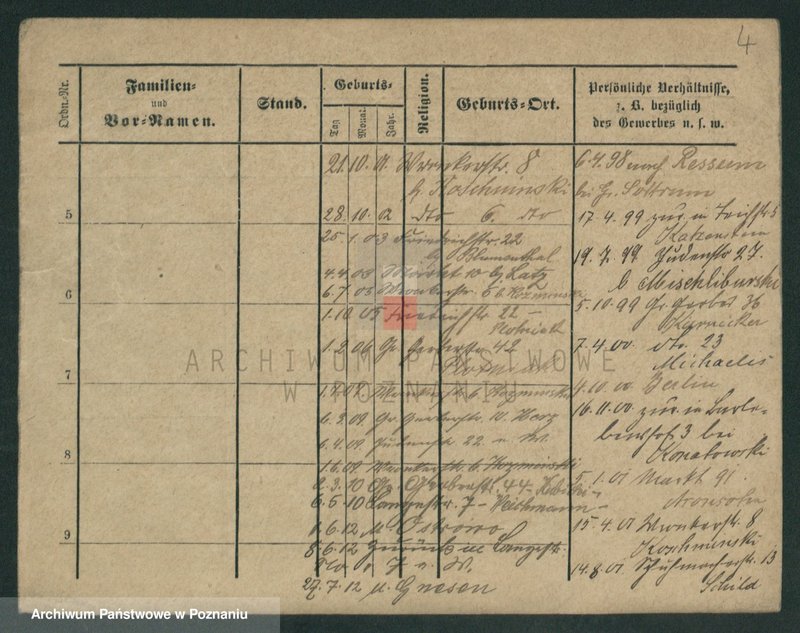 4
Ordn.-Nr.
Familien-
und
Vor-Namen.
Stand.
Geburts-
Tag
Monat
Jahr.
Religion.
Geburts-Ort.
Persönliche Verhältnisse,
z. B. bezüglich
des Gewerbes u. s. w.
21. 10. 01. Wronkerstr. 8
b. Koschminski
28. 10. 02 dto 6. dto
25. 1. 03 Friedrichstr. 22
b. Blumenthal
4. 4. 03 Markt 10 b. Latz
6. 7. 03 Wronkerstr. 6 b. Kozminski
1. 10. 05 Friedrichstr. 22 -
1. 2. 06 Gr. Gerberstr. 42
Wronkerstr. 6 Kozminski
6. 3. 09. Gr. Gerberstr. 10. Herz
6. 4. 09. Judenstr. 22 u. W.
1. 6. 09. Wronkerstr. 6 Kozminski
2. 3. 10 Gr. Gerberstr. 44 -
6. 5. 10 Langestr. 7 - Wichmann -
1. 6. 12 n. Ostrowo
8. 6. 12 zurück in Langestr.
No 7 u. W.
27. 7. 12 n. Gnesen
6. 4. 98 Resseem
bei Gr.
17. 4. 99 zur. in Teichstr. 5
Katzenstein
19. 7. 99. Judenstr 27.
b Mischliburski
5. 10. 99 Gr. Gerbst. 36
Karnicker
7. 4. 00. dto. 23
Michaelis
4. 10. 00 Berlin
16. 11. 00 zur. in
3 bei
Konatowski
5. 1. 01 Markt 91.
Aronsohn
15. 4. 01 Wronkerstr. 8
Koschminski
14. 8. 01 Schuhmacherstr. 13
Schild
5
6
7
8
9
ARCHIWUM PAŃSTWOWE
W POZNANIU
Archiwum Państwowe w Poznaniu